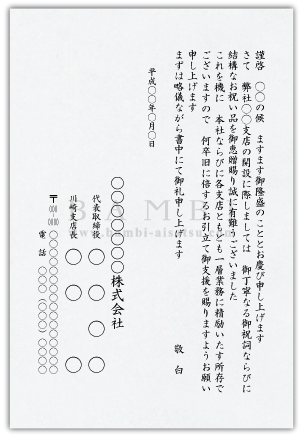 謹啓　○○の候　ますます御隆盛のこととお慶び申し上げます
さて　弊社○○支店の開設に際しましては　御丁寧なる御祝詞ならびに
結構なお祝い品を御恵贈賜り誠に有難うございました
これを機に　本社ならびに各支店ともども一層業務に精励いたす所存で
ございますので　何卒旧に倍するお引立て御支援を賜りますようお願い
申し上げます
まずは略儀ながら書中にて御礼申し上げます
敬白
平成○○年○月○日
○○○○○○○株式会社
代表取締役　○○　○○
川崎支店長　○○　○○
〒○○○-○○○○　○○○○○○○○○○○○
電話　○○○（○○○）○○○○